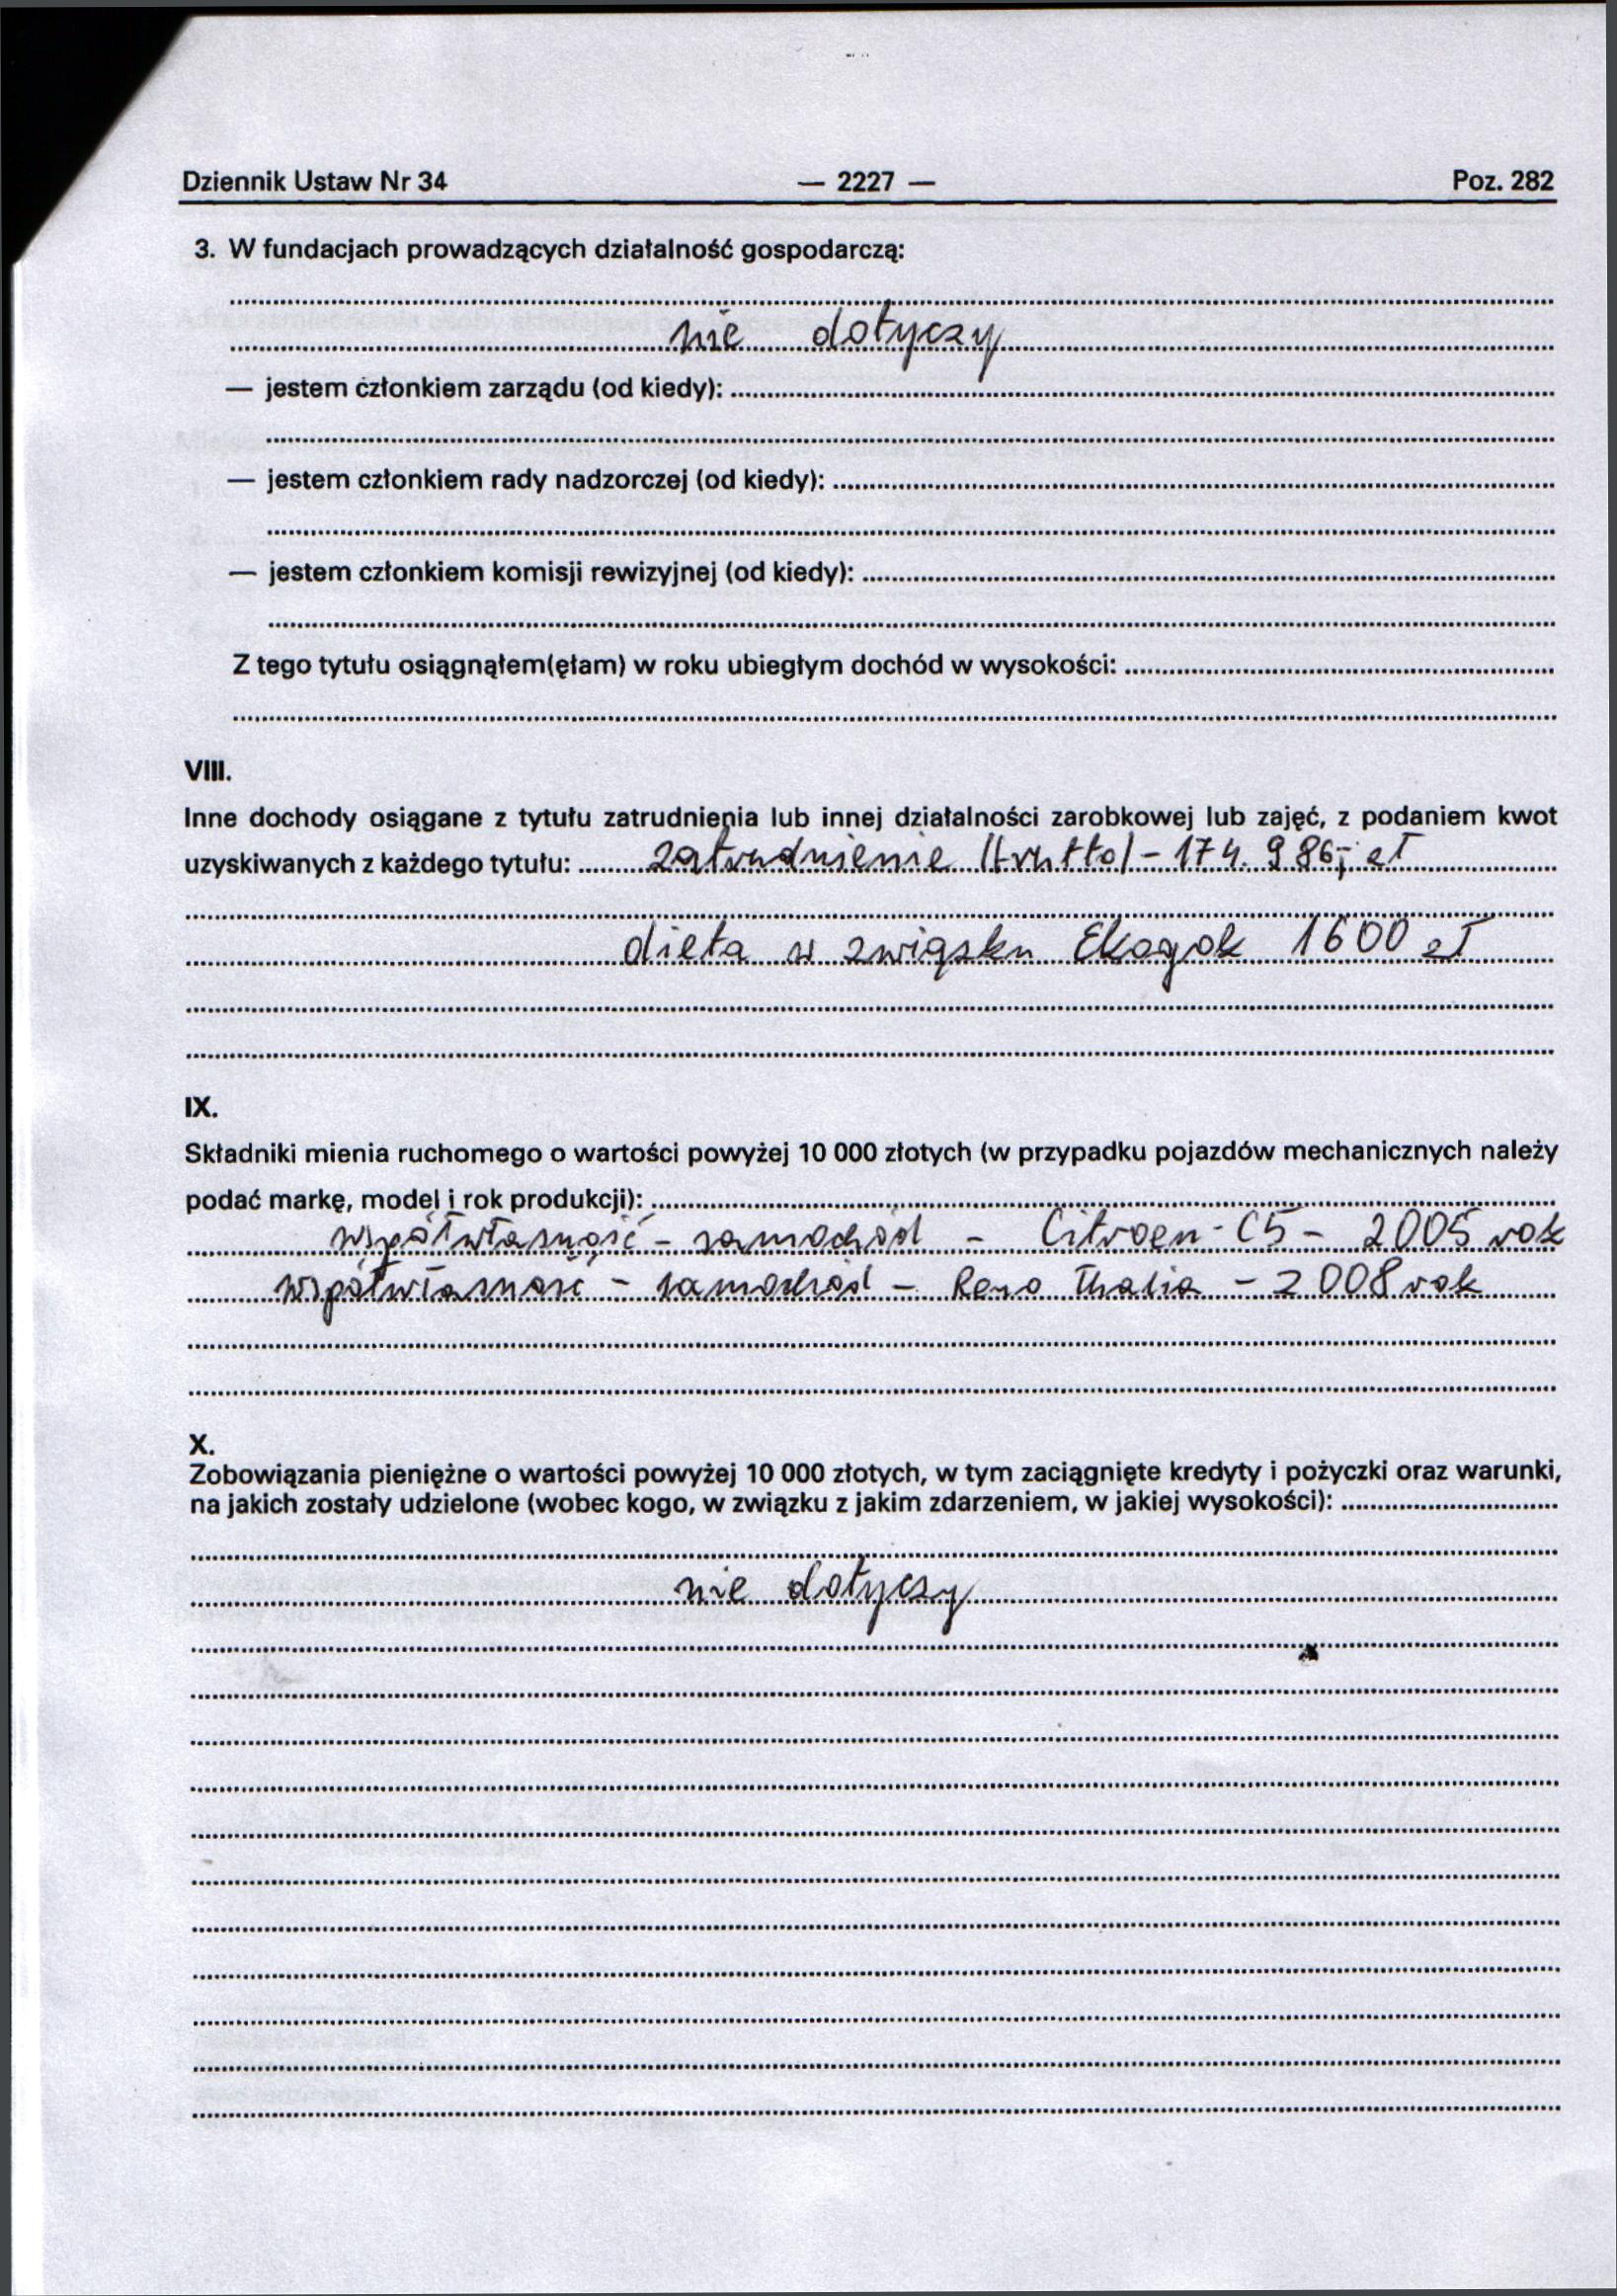 Dziennik Ustaw Nr 34 — 2227 — Poz. 282
3. W fundacjach prowadzących działalność gospodarczą:
nie dotyczy
— jestem członkiem zarządu (od kiedy):
— jestem członkiem rady nadzorczej (od kiedy):
— jestem członkiem komisji rewizyjnej (od kiedy):
Z tego tytułu osiągnąłem(ęłam) w roku ubiegłym dochód w wysokości:
VIII.
Inne dochody osiągane z tytułu zatrudnienia lub innej działalności zarobkowej lub zajęć, z podaniem kwot
uzyskiwanych z każdego tytułu: zatrudnienie (brutto) - 174.986,- zł
dieta w związku Ekogok 1600 zł
IX.
Składniki mienia ruchomego o wartości powyżej 10 000 złotych (w przypadku pojazdów mechanicznych należy
podać markę, model i rok produkcji):
współwłasność - samochód - Citroen - C5 - 2005 rok
współwłasność - samochód - Reno Thalia - 2008 rok
X.
Zobowiązania pieniężne o wartości powyżej 10 000 złotych, w tym zaciągnięte kredyty i pożyczki oraz warunki,
na jakich zostały udzielone (wobec kogo, w związku z jakim zdarzeniem, w jakiej wysokości):
nie dotyczy